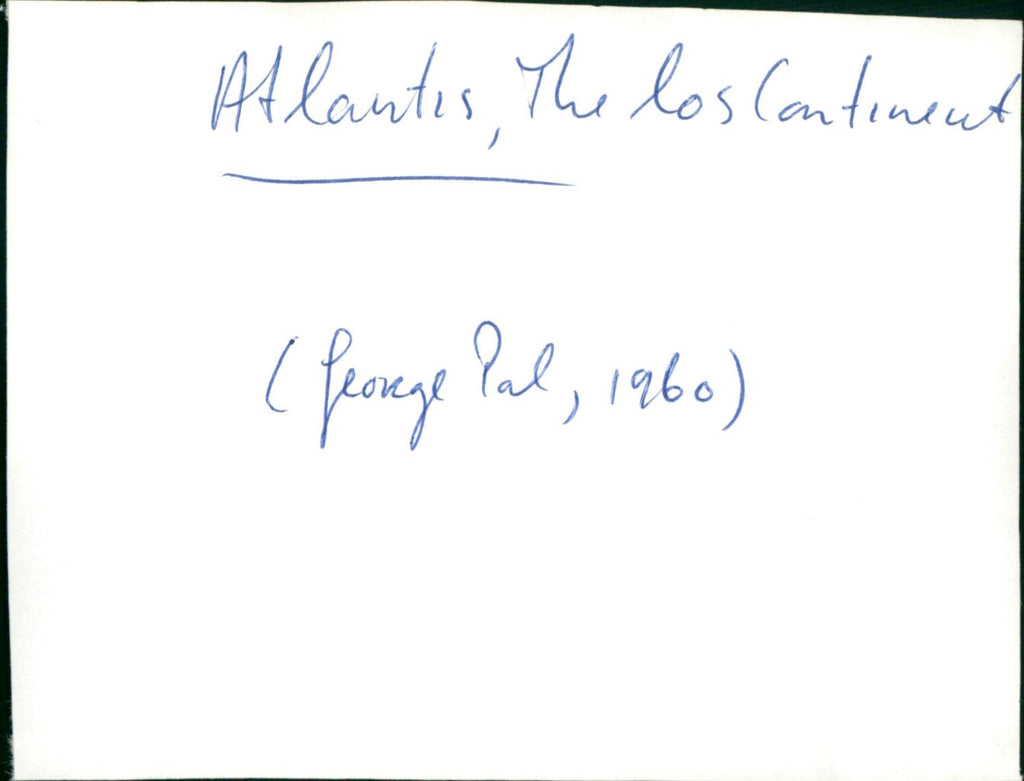 Atlantis, The los Continent
(George Pal, 1960)